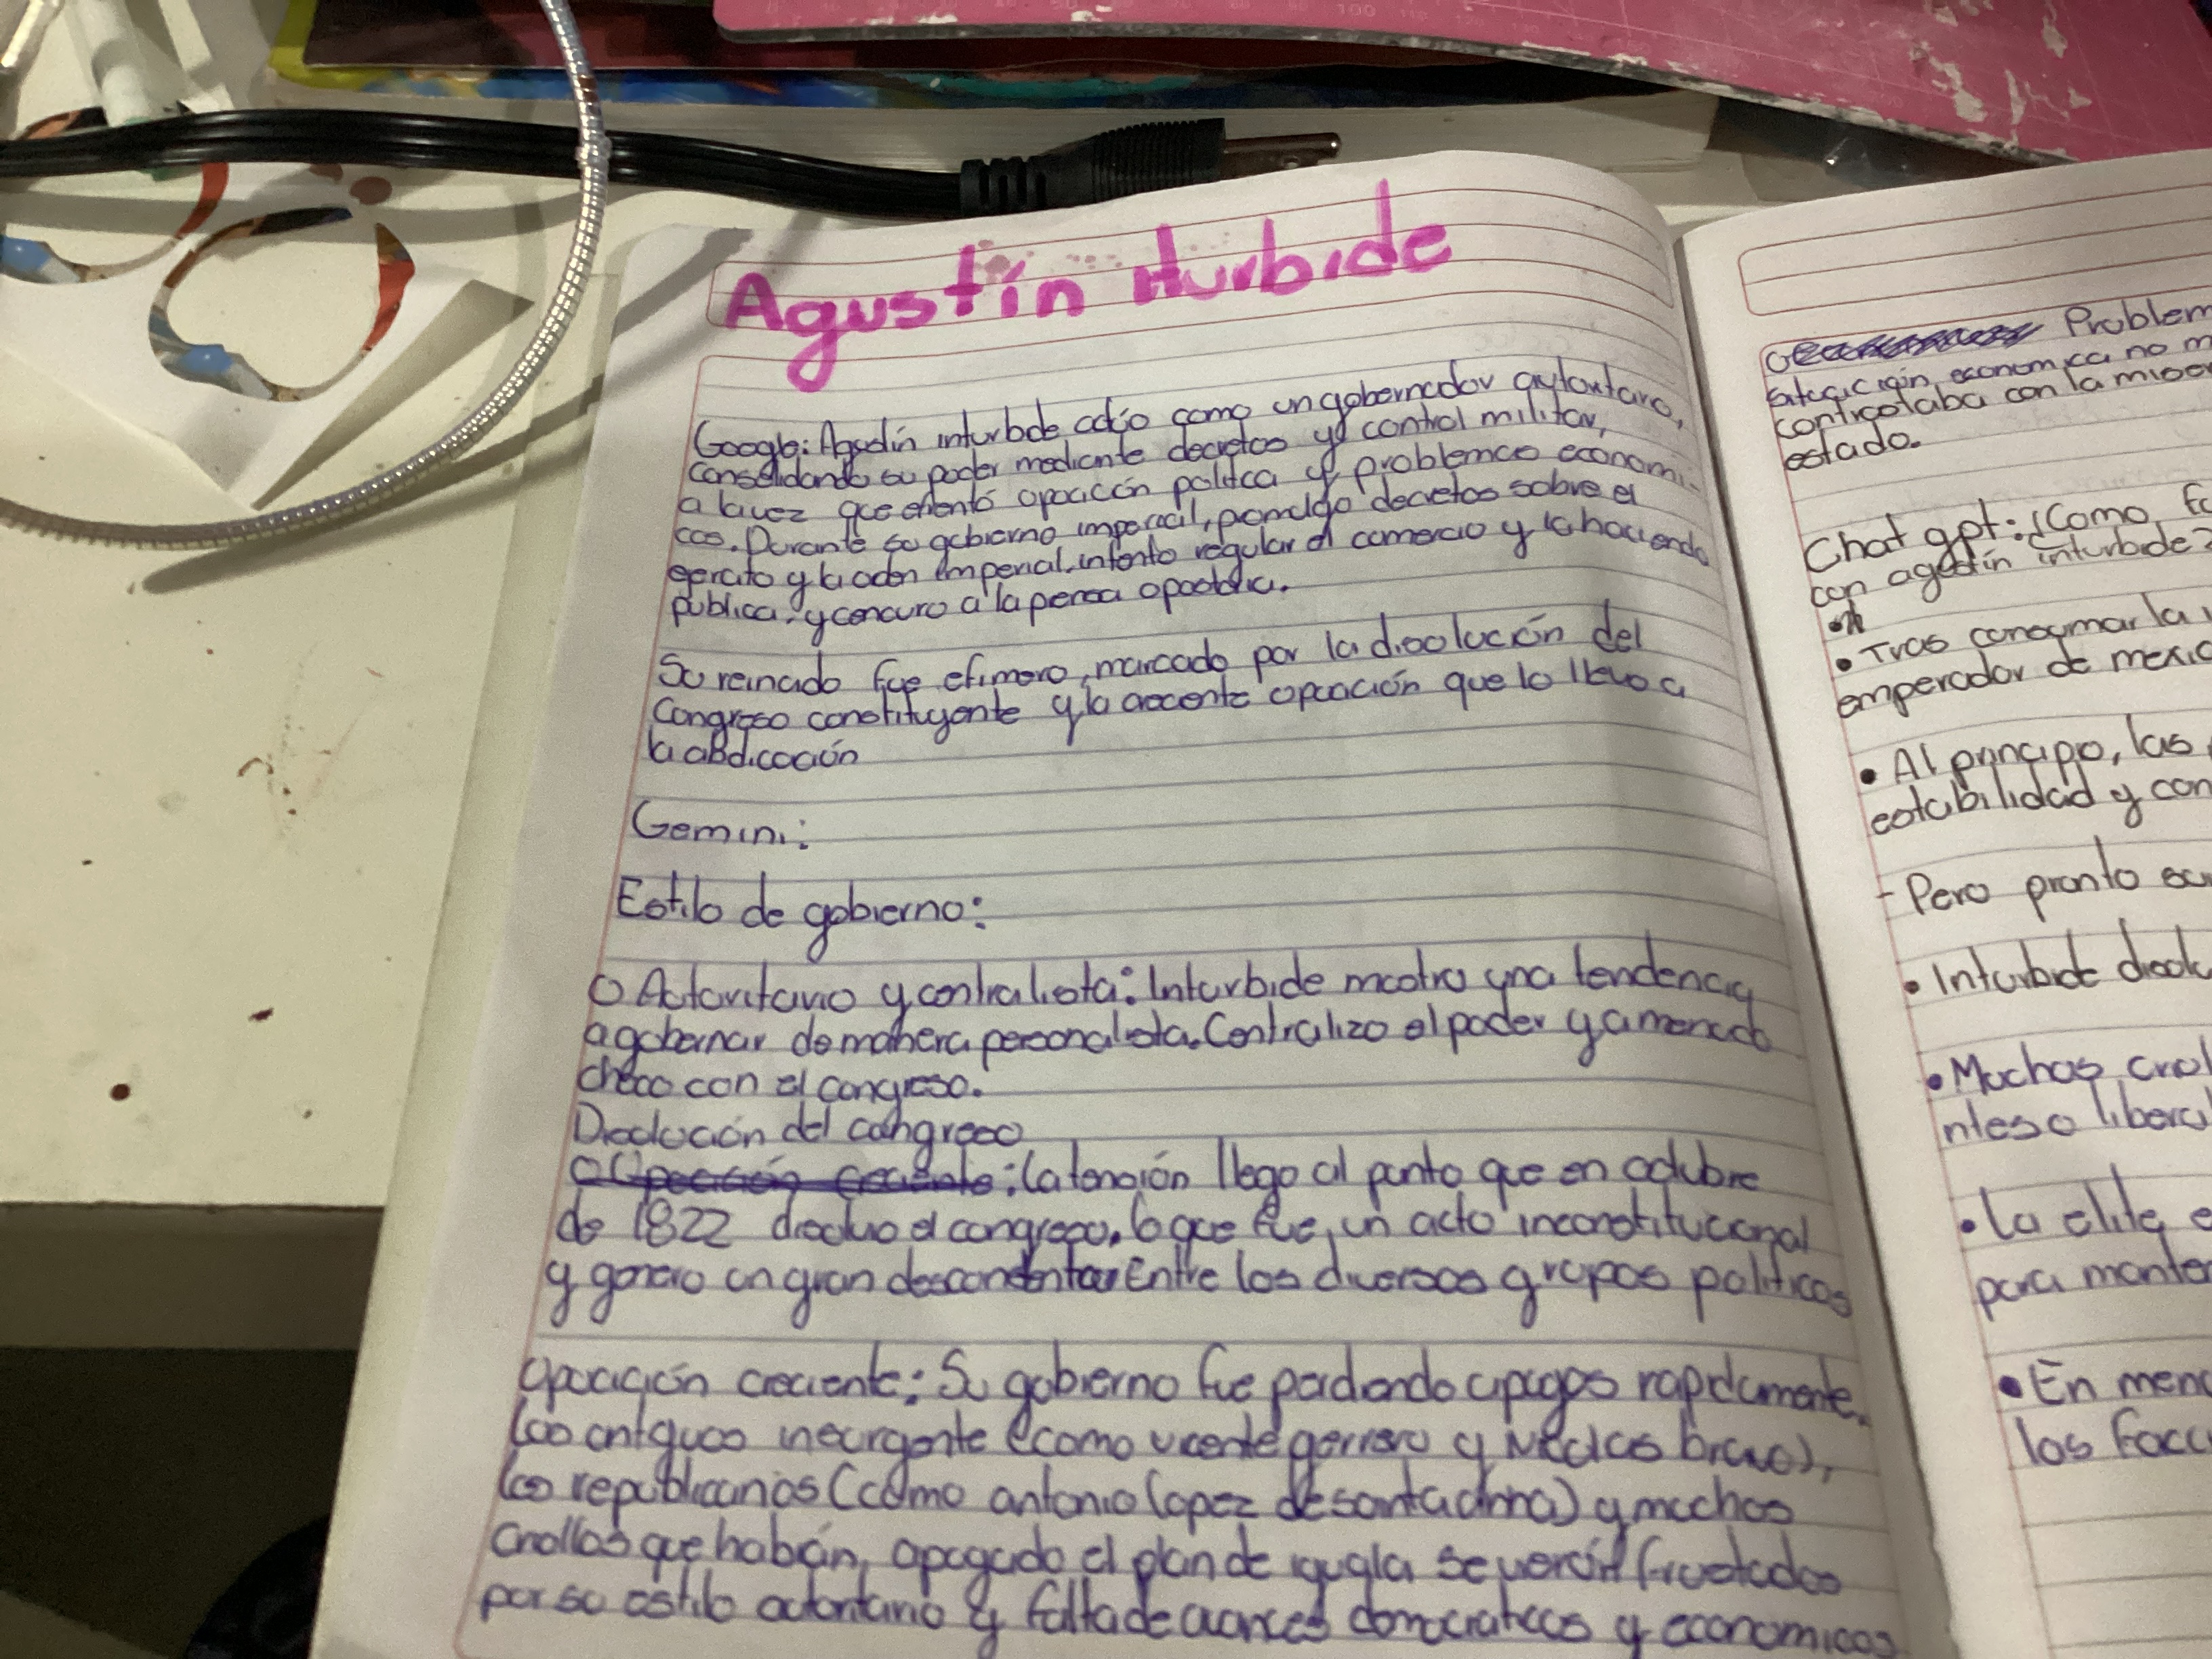 Agustín Iturbide
Google: Agustín inturbide actúo como un gobernador autoritario,
consolidando su poder mediante decretos y control militar,
a la vez que enfrentó oposición política y problemas economi-
cos. Durante su gobierno imperial, promulgo decretos sobre el
ejercito y la orden imperial, intento regular el comercio y la hacienda
publica, y censuro a la prensa opositora.
Su reinado fue efimero, marcado por la disolución del
Congreso constituyente y la creciente oposición que lo llevo a
la abdicación
Gemini:
Estilo de gobierno:
O Autoritario y centralista: Inturbide mostro una tendencia
a gobernar de manera personalista. Centralizo el poder y a menudo
choco con el congreso.
Disolución del congreso
: la tensión llego al punto que en octubre
de 1822 disolvio el congreso, lo que fue un acto inconstitucional
y genero un gran Entre los diversos grupos politicos
Oposición creciente: Su gobierno fue perdiendo apoyos rapidamente.
Los antiguos insurgente (como vicente gerrero y Nicolas bravo),
los republicanos (como antonio lopez de santa anna) y muchos
criollos que habían apoyado el plan de iguala se frustados
por su estilo autoritario y falta de avances democraticos y economicos
Problem
situación economica no m
controlaba con la
estado.
Chat gpt: ¿Como fo
con agustín inturbide?
• Tras consumar la i
emperador de mexic
• Al principo, las
estabilidad y con
- Pero pronto su
• Inturbide disolu
• Muchos criol
ntes o libera
• la elite e
para manten
• En meno
los facc